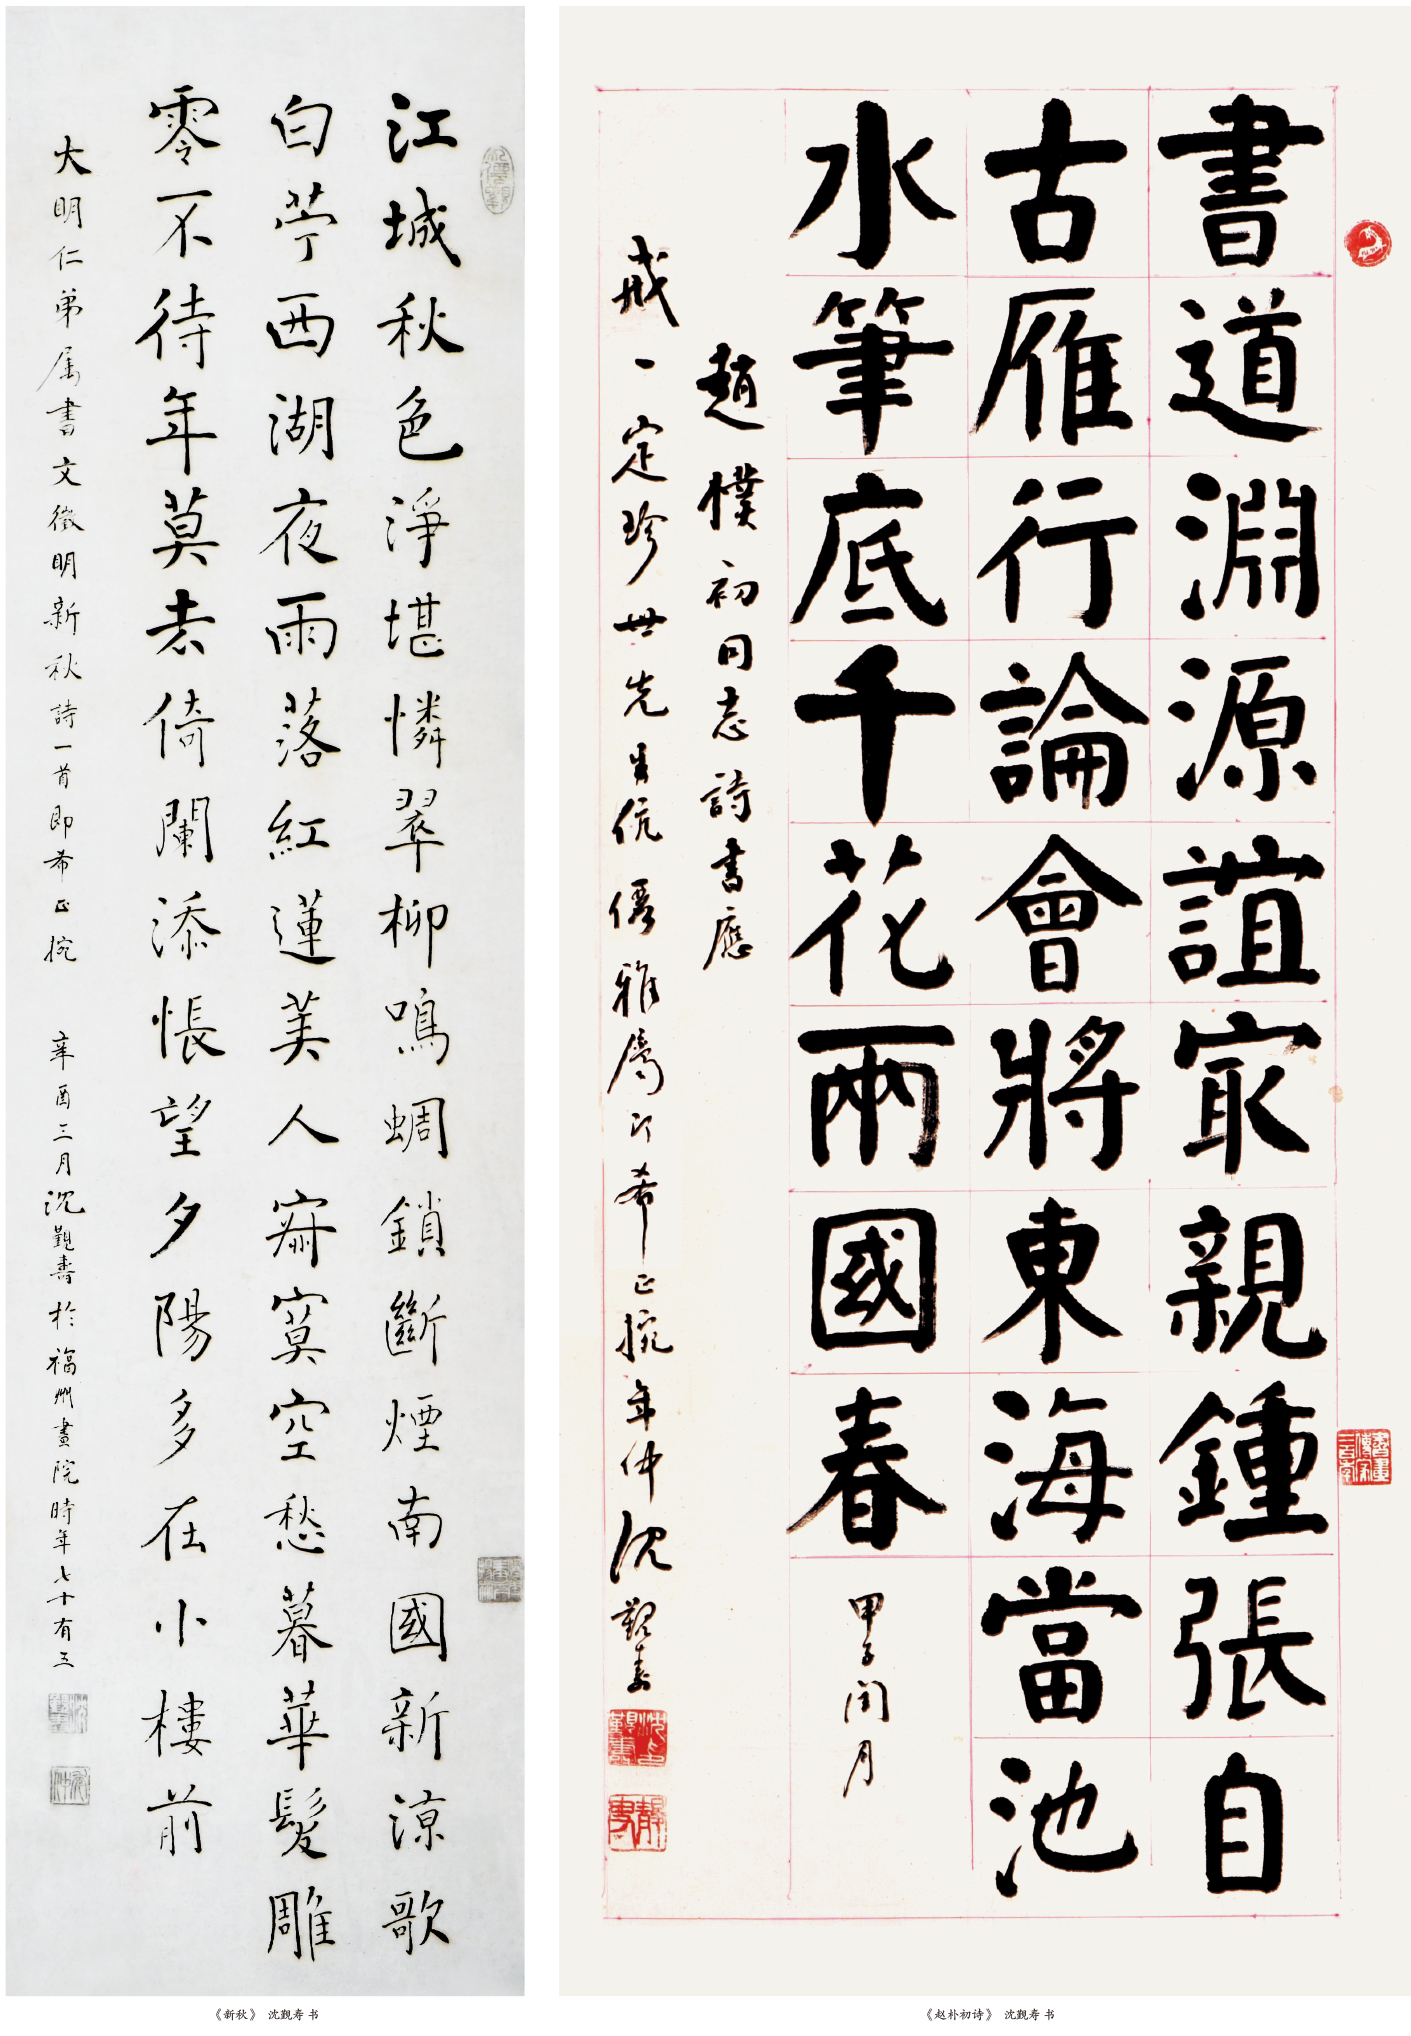 江城秋色淨堪憐翠柳鳴蜩鎖斷煙南國新涼歌
白苧西湖夜雨落紅蓮美人寂寞空愁暮華髮雕
零不待年莫去倚闌添悵望夕陽多在小樓前
大明仁弟属書文徵明新秋詩一首即希正捥 辛酉三月沈覲壽於福州畫院時年七十有五
《新秋》 沈觐寿 书
書道淵源誼冣親鍾張自
古雁行論會將東海當池
水筆底千花兩國春 甲子閏月
趙樸初同志詩書應
戒一定珍世先生伉儷雅屬即希正捥年仲沈覲壽
書畫傳家三百年
《赵朴初诗》 沈觐寿 书